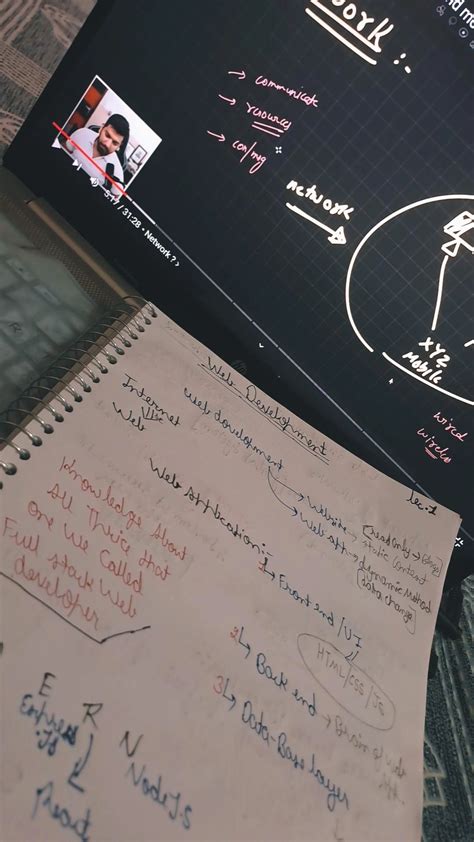 work :-
→ communicate
→ resources
→ con/mg
network
XYZ
Mobile
wired
5:17 / 31:28 • Network ? >
Web Development
Lec-1
Internet
Web
web development
→ Website → static content
[readonly → Blogs]
→ Web App → dynamic Method
Web Application:-
1↳ Front end / UI
HTML/CSS/JS
2↳ Back end →
3↳ Data-Base layer
knowledge About
All Thrice that
one we called
Full stack web
developer
E R N
Express
JS
React
NodeJS